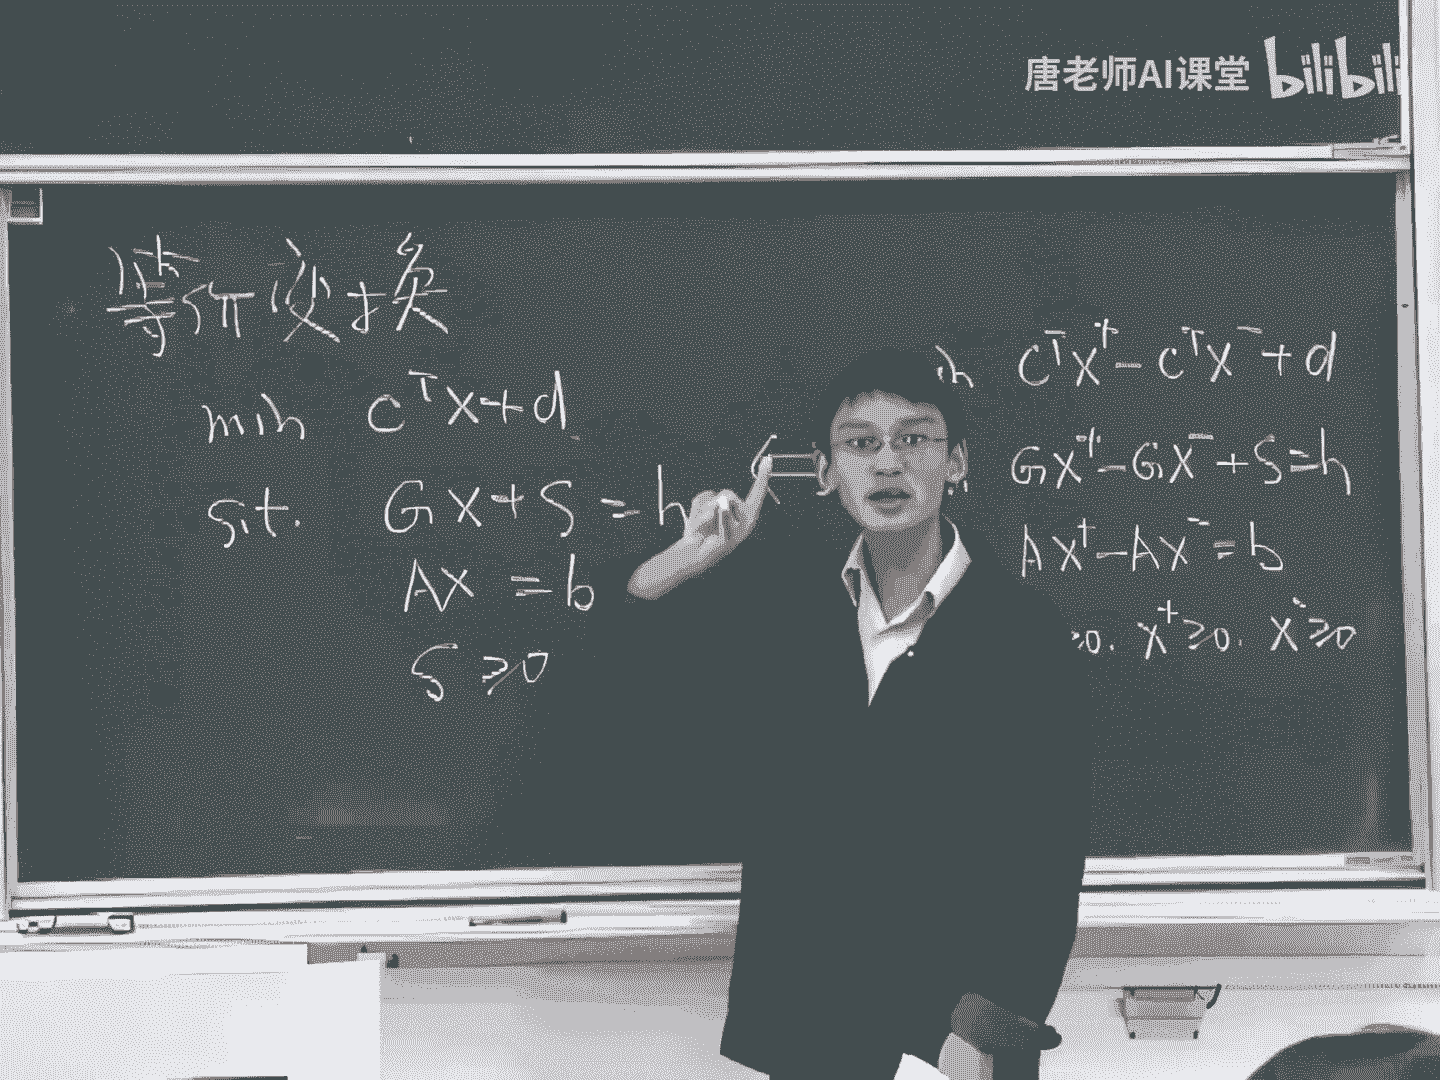 唐老师AI课堂 bilibili
等价变换
min cᵀx+d
s.t. Gx+s=h
Ax=b
s≥0
cᵀx⁺-cᵀx⁻+d
Gx⁺-Gx⁻+s=h
Ax⁺-Ax⁻=b
≥0. x⁺≥0. x⁻≥0